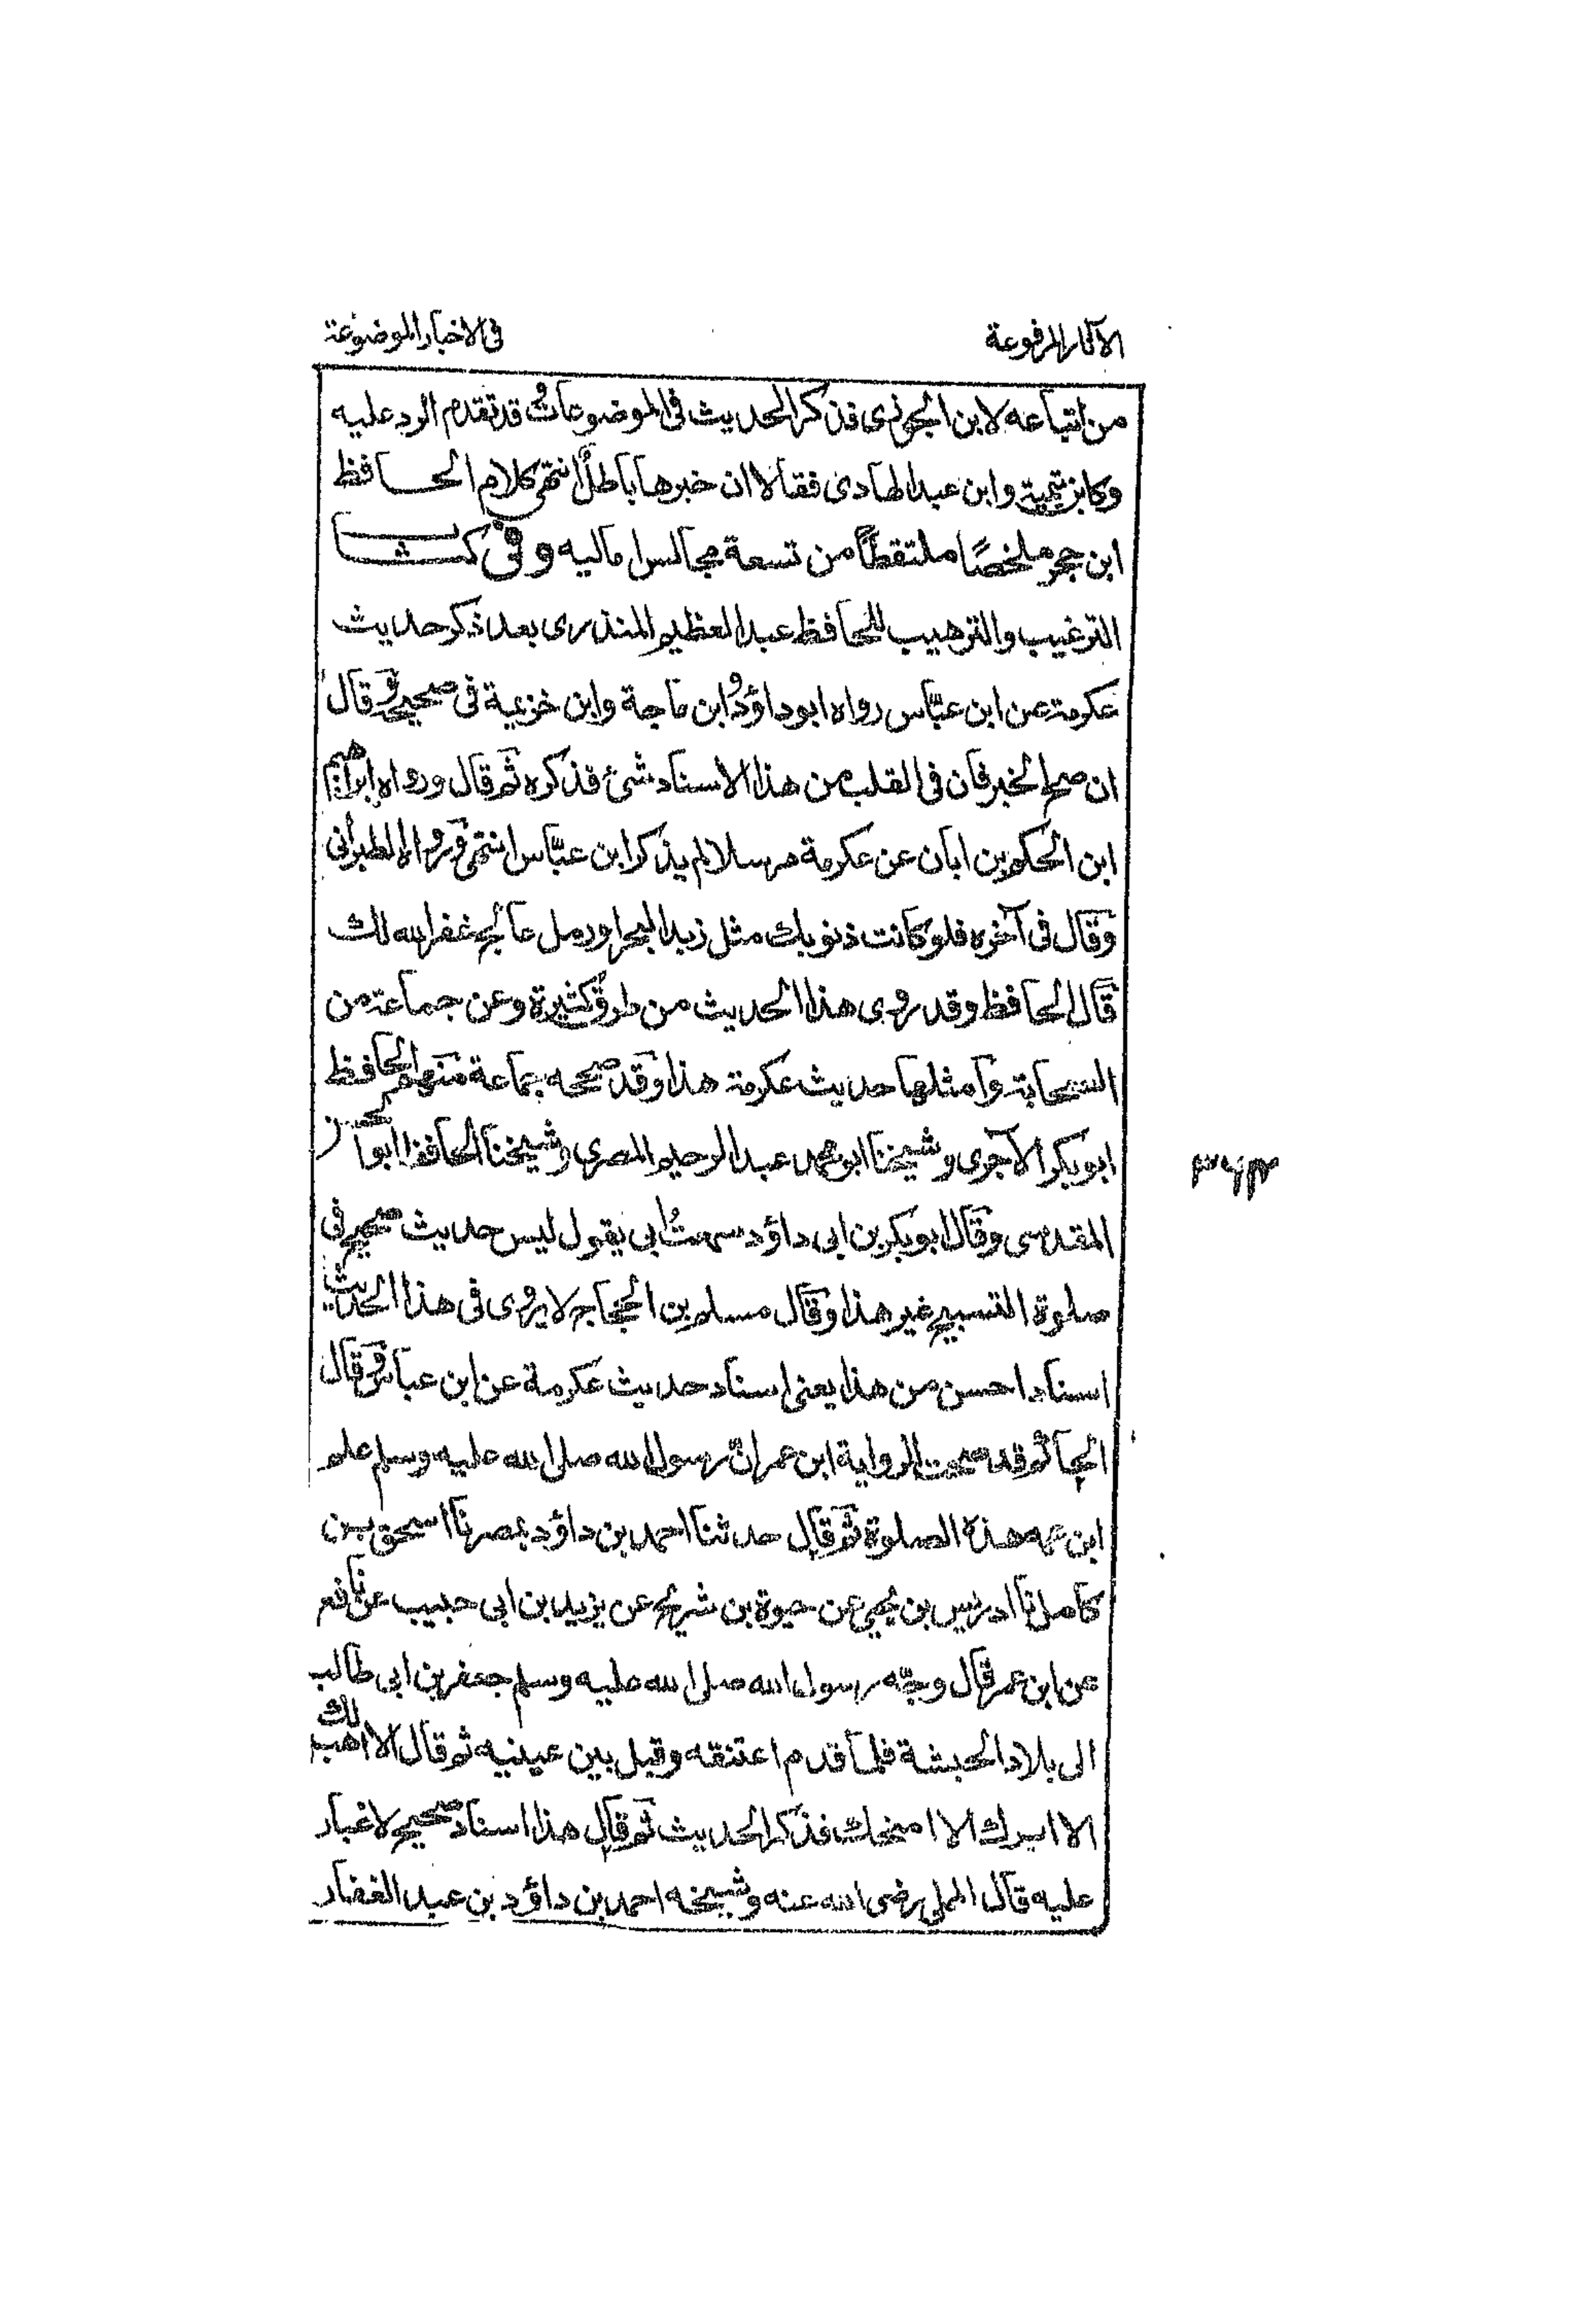 الآثار المرفوعة
فى الاخبار الموضوعة
من اتباعه لابن الجوزى فذكر الحديث فى الموضوعات وقد تقدم الرد عليه
وكابن تيمية وابن عبد الهادى فقالا ان خبرها باطل انتهى كلام الحافظ
ابن حجر ملخصًا ملتقطًا من تسعة مجالس اماليه وفى كتاب
الترغيب والترهيب للحافظ عبد العظيم المنذرى بعد ذكر حديث
عكرمة عن ابن عبّاس رواه ابو داؤد وابن ماجة وابن خزيمة فى صحيحه وقال
ان صح الخبر فان فى القلب من هذا الاسناد شئ فذكره ثم قال ورواه ابراهيم
ابن الحكم بن ابان عن عكرمة مرسلا لم يذكر ابن عبّاس انتهى ورواه الطبرانى
وقال فى آخره فلو كانت ذنوبك مثل زبد البحر او رمل عالج غفر الله لك
قال الحافظ وقد روى هذا الحديث من طرق كثيرة وعن جماعة من
الصحابة وامثلها حديث عكرمة هذا وقد صححه جماعة منهم الحافظ
ابو بكر الآجرى وشيخنا ابو محمد عبد الرحيم المصرى وشيخنا الحافظ ابو الحسن
المقدسى وقال ابو بكر بن ابى داؤد سمعتُ ابى يقول ليس حديث صحيح فى
صلوة التسبيح غير هذا وقال مسلم بن الحجاج لا يروى فى هذا الحديث
اسناد احسن من هذا يعنى اسناد حديث عكرمة عن ابن عباس وقال
الحاكم قد صحت الرواية ابن عمر انّ رسول الله صلى الله عليه وسلم علم
ابن عمه هذه الصلوة ثم قال حدثنا احمد بن داؤد بمصر نا اسحق بن
كامل نا ادريس بن يحيى عن حيوة بن شريح عن يزيد بن ابى حبيب عن نافع
عن ابن عمر قال وجّه رسول الله صلى الله عليه وسلم جعفر بن ابى طالب
الى بلاد الحبشة فلما قدم اعتنقه وقبل بين عينيه ثم قال الا اهب لك
الا ابشرك الا امنحك فذكر الحديث ثم قال هذا اسناد صحيح لا غبار
عليه قال المملى رضى الله عنه وشيخه احمد بن داؤد بن عبد الغفار